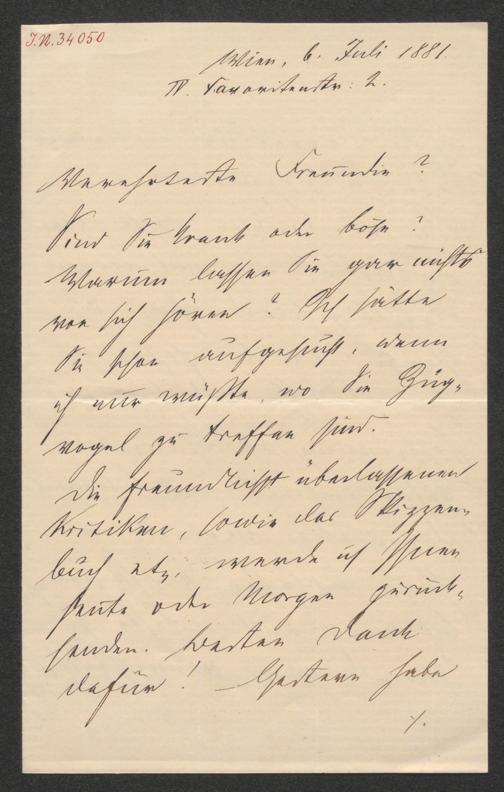 I.N. 34050
Wien, 6. Juli 1881.
IV. Favoritenstr: 2.
Verehrteste Freundin?
Sind Sie krank oder böse?
Warum lassen Sie gar nichts
von sich hören? Ich hätte
Sie schon aufgesucht, wenn
ich nur wüßte, wo Sie Zug-
vogel zu treffen sind.
Die freundlichst überlassenen
Kritiken, sowie das Skizzen-
buch etz, werde ich Ihnen
heute oder Morgen zurück-
senden. Besten Dank
dafür! Gestern habe
/.